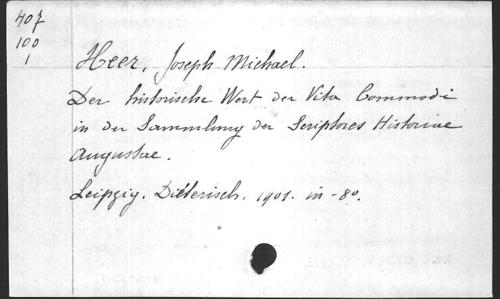 407
100
1
Heer, Joseph Michael.
Der historische Wert der Vita Commodi
in der Sammlung der Scriptores Historiae
Augustae.
Leipzig. Dieterisch. 1901. in-8o.